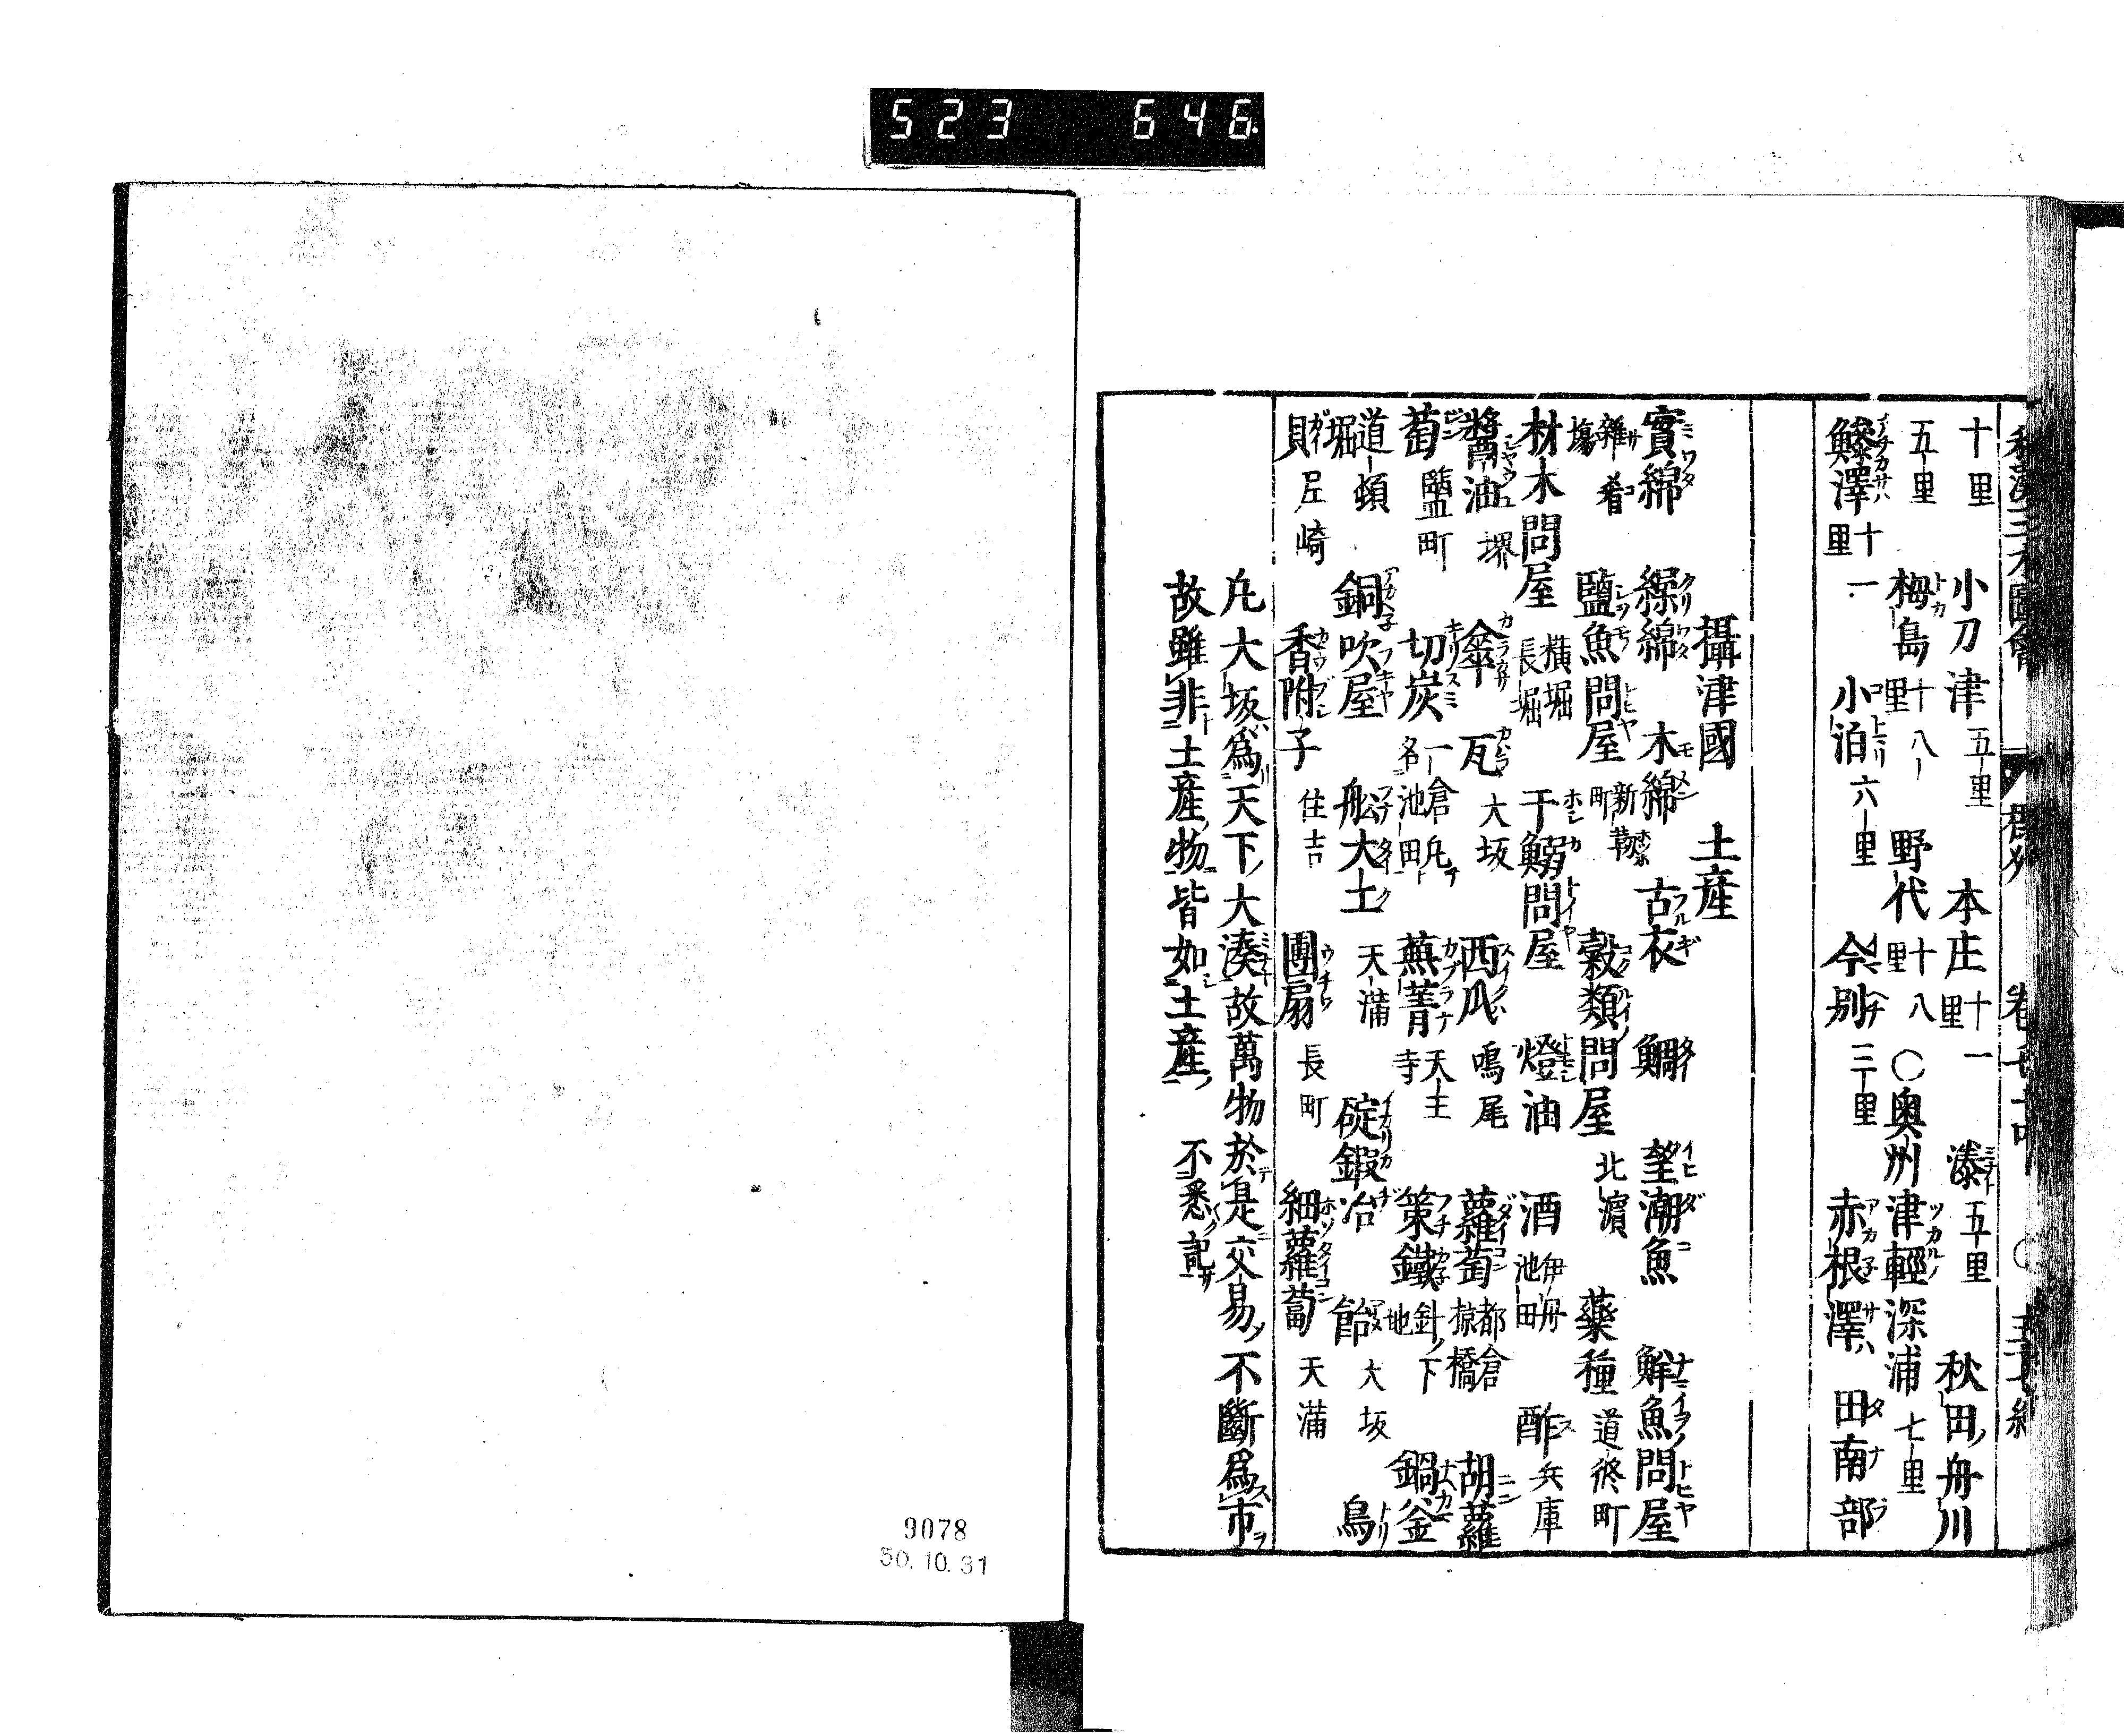 523 646
十里 小刀津五里 本庄十一里 湊五里 秋田ノ舟川
五里 梅島十八里 野代十八里 ○奥州津輕深浦七里
鰺澤十一里 小泊六里 今別三里 赤根澤 田南部
攝津國 土産
實綿 繰綿 木綿 古衣 鯛 望潮魚 鮮魚問屋
雜肴塲 鹽魚問屋新靱町 穀類問屋北濵 藥種道修町
材木問屋横堀長堀 干鰯問屋 燈油 酒伊丹池田 酢兵庫
醬油堺 傘 瓦大坂 西瓜鳴尾 蘿蔔都倉椋橋 胡蘿
蔔鹽町 切炭一倉名池田 蕪菁天王寺 策鐵針ノ下地 鍋釜
道頓堀 銅吹屋 舩大工天滿 碇鍛冶 飴大坂 鳥
貝尼崎 香附子住吉 團扇長町 細蘿蔔天滿
凡大坂爲天下ノ大湊故萬物於是交易ノ不斷爲市
故雖非土産ノ物皆如土産 不悉記
9078
50.10.31